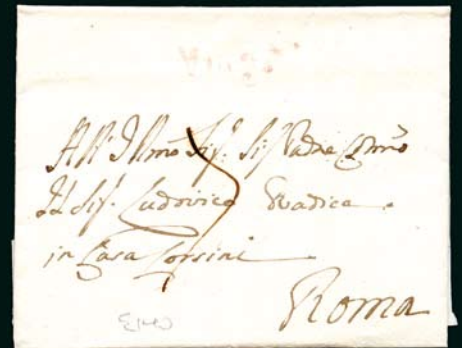 All' Illmo Sig.r Sig.r Padre Colmo
Il Sig.r Ludovico Radice
in Casa Corsini
Roma